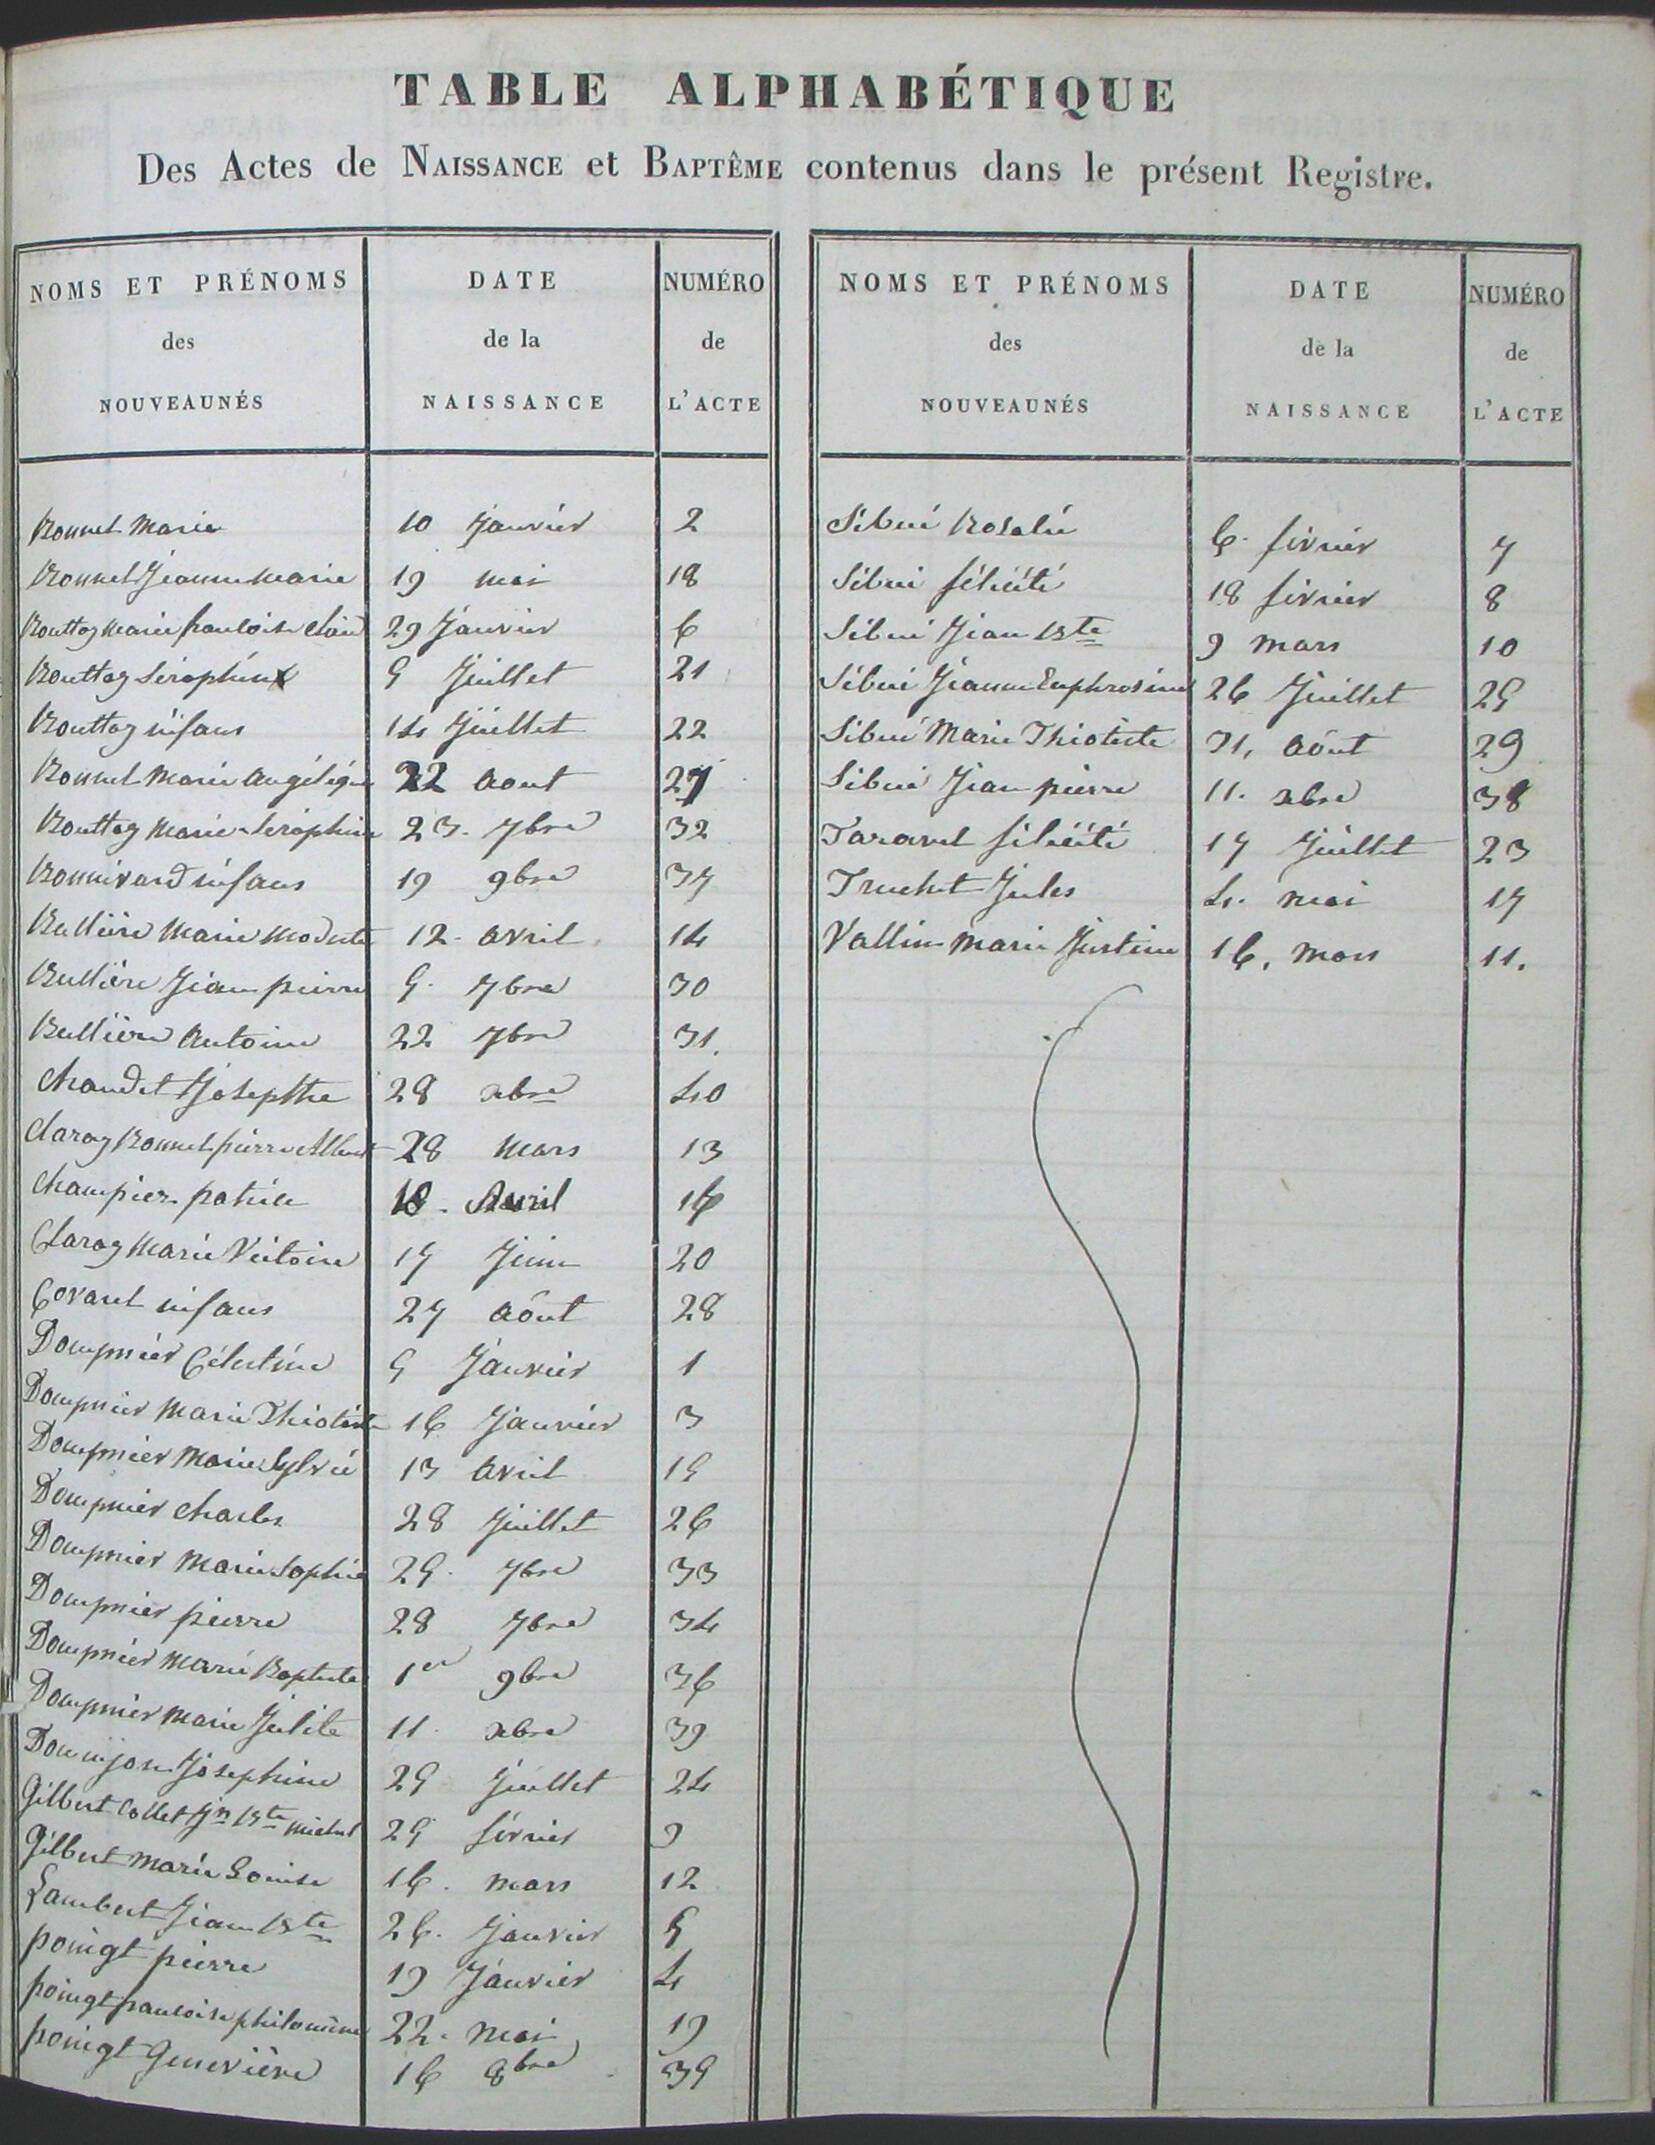 TABLE ALPHABÉTIQUE
Des Actes de NAISSANCE et BAPTÊME contenus dans le présent Registre.
NOMS ET PRÉNOMS
des
NOUVEAUNÉS
DATE
de la
NAISSANCE
NUMÉRO
de
L'ACTE
Bonnet Marie 10 Janvier 2
Bonnet Jeanne Marie 19 mai 18
Bouttaz Marie françoise 29 Janvier 6
Bouttaz Séraphin 5 Juillet 21
Bouttaz infans 14 Juillet 22
Bonnet Marie Angélique 22 aout 27
Bouttaz Marie Séraphine 23. 7bre 32
Bonnivard infans 19 9bre 37
Bullière Marie Modeste 12. avril 14
Bullière Jean pierre 5. 7bre 30
Bullière Antoine 22 7bre 31.
Chaudet Josephte 28 xbre 40
Claraz Bonnet pierre Albert 28 Mars 13
Champier 18. Avril 16
Claraz Marie Victoire 17 Juin 20
Covarel infans 27 Aôut 28
Dompnier Célestine 5 Janvier 1
Dompnier Marie Théotiste 16 Janvier 3
Dompnier Marie Sylvie 13 Avril 15
Dompnier Charles 28 Juillet 26
Dompnier Marie Sophie 25. 7bre 33
Dompnier pierre 28 7bre 34
Dompnier Marie Baptiste 1er 9bre 36
Dompnier Marie Julite 11. xbre 39
Domijon Joséphine 25 Juillet 24
Gilbert Collet Jn Bte Michel 25 février 9
Gilbert Marie Louise 16. mars 12
Lambert Jean Bte 26. Janvier 5
poingt pierre 19 Janvier 4
poingt françoise philomène 22. mai 19
poingt Geneviève 16 8bre 35
NOMS ET PRÉNOMS
des
NOUVEAUNÉS
DATE
de la
NAISSANCE
NUMÉRO
de
L'ACTE
Sibué Rosalie 6. février 7
Sibué félicité 18 février 8
Sibué Jean Bte 9 mars 10
Sibué Jeanne Euphrosine 26 Juillet 25
Sibué Marie Théotiste 31, Aôut 29
Sibué Jean pierre 11. xbre 38
Taravel félicité 17 Juillet 23
Truchet Jules 4. mai 17
Vallin Marie Justine 16, mars 11.